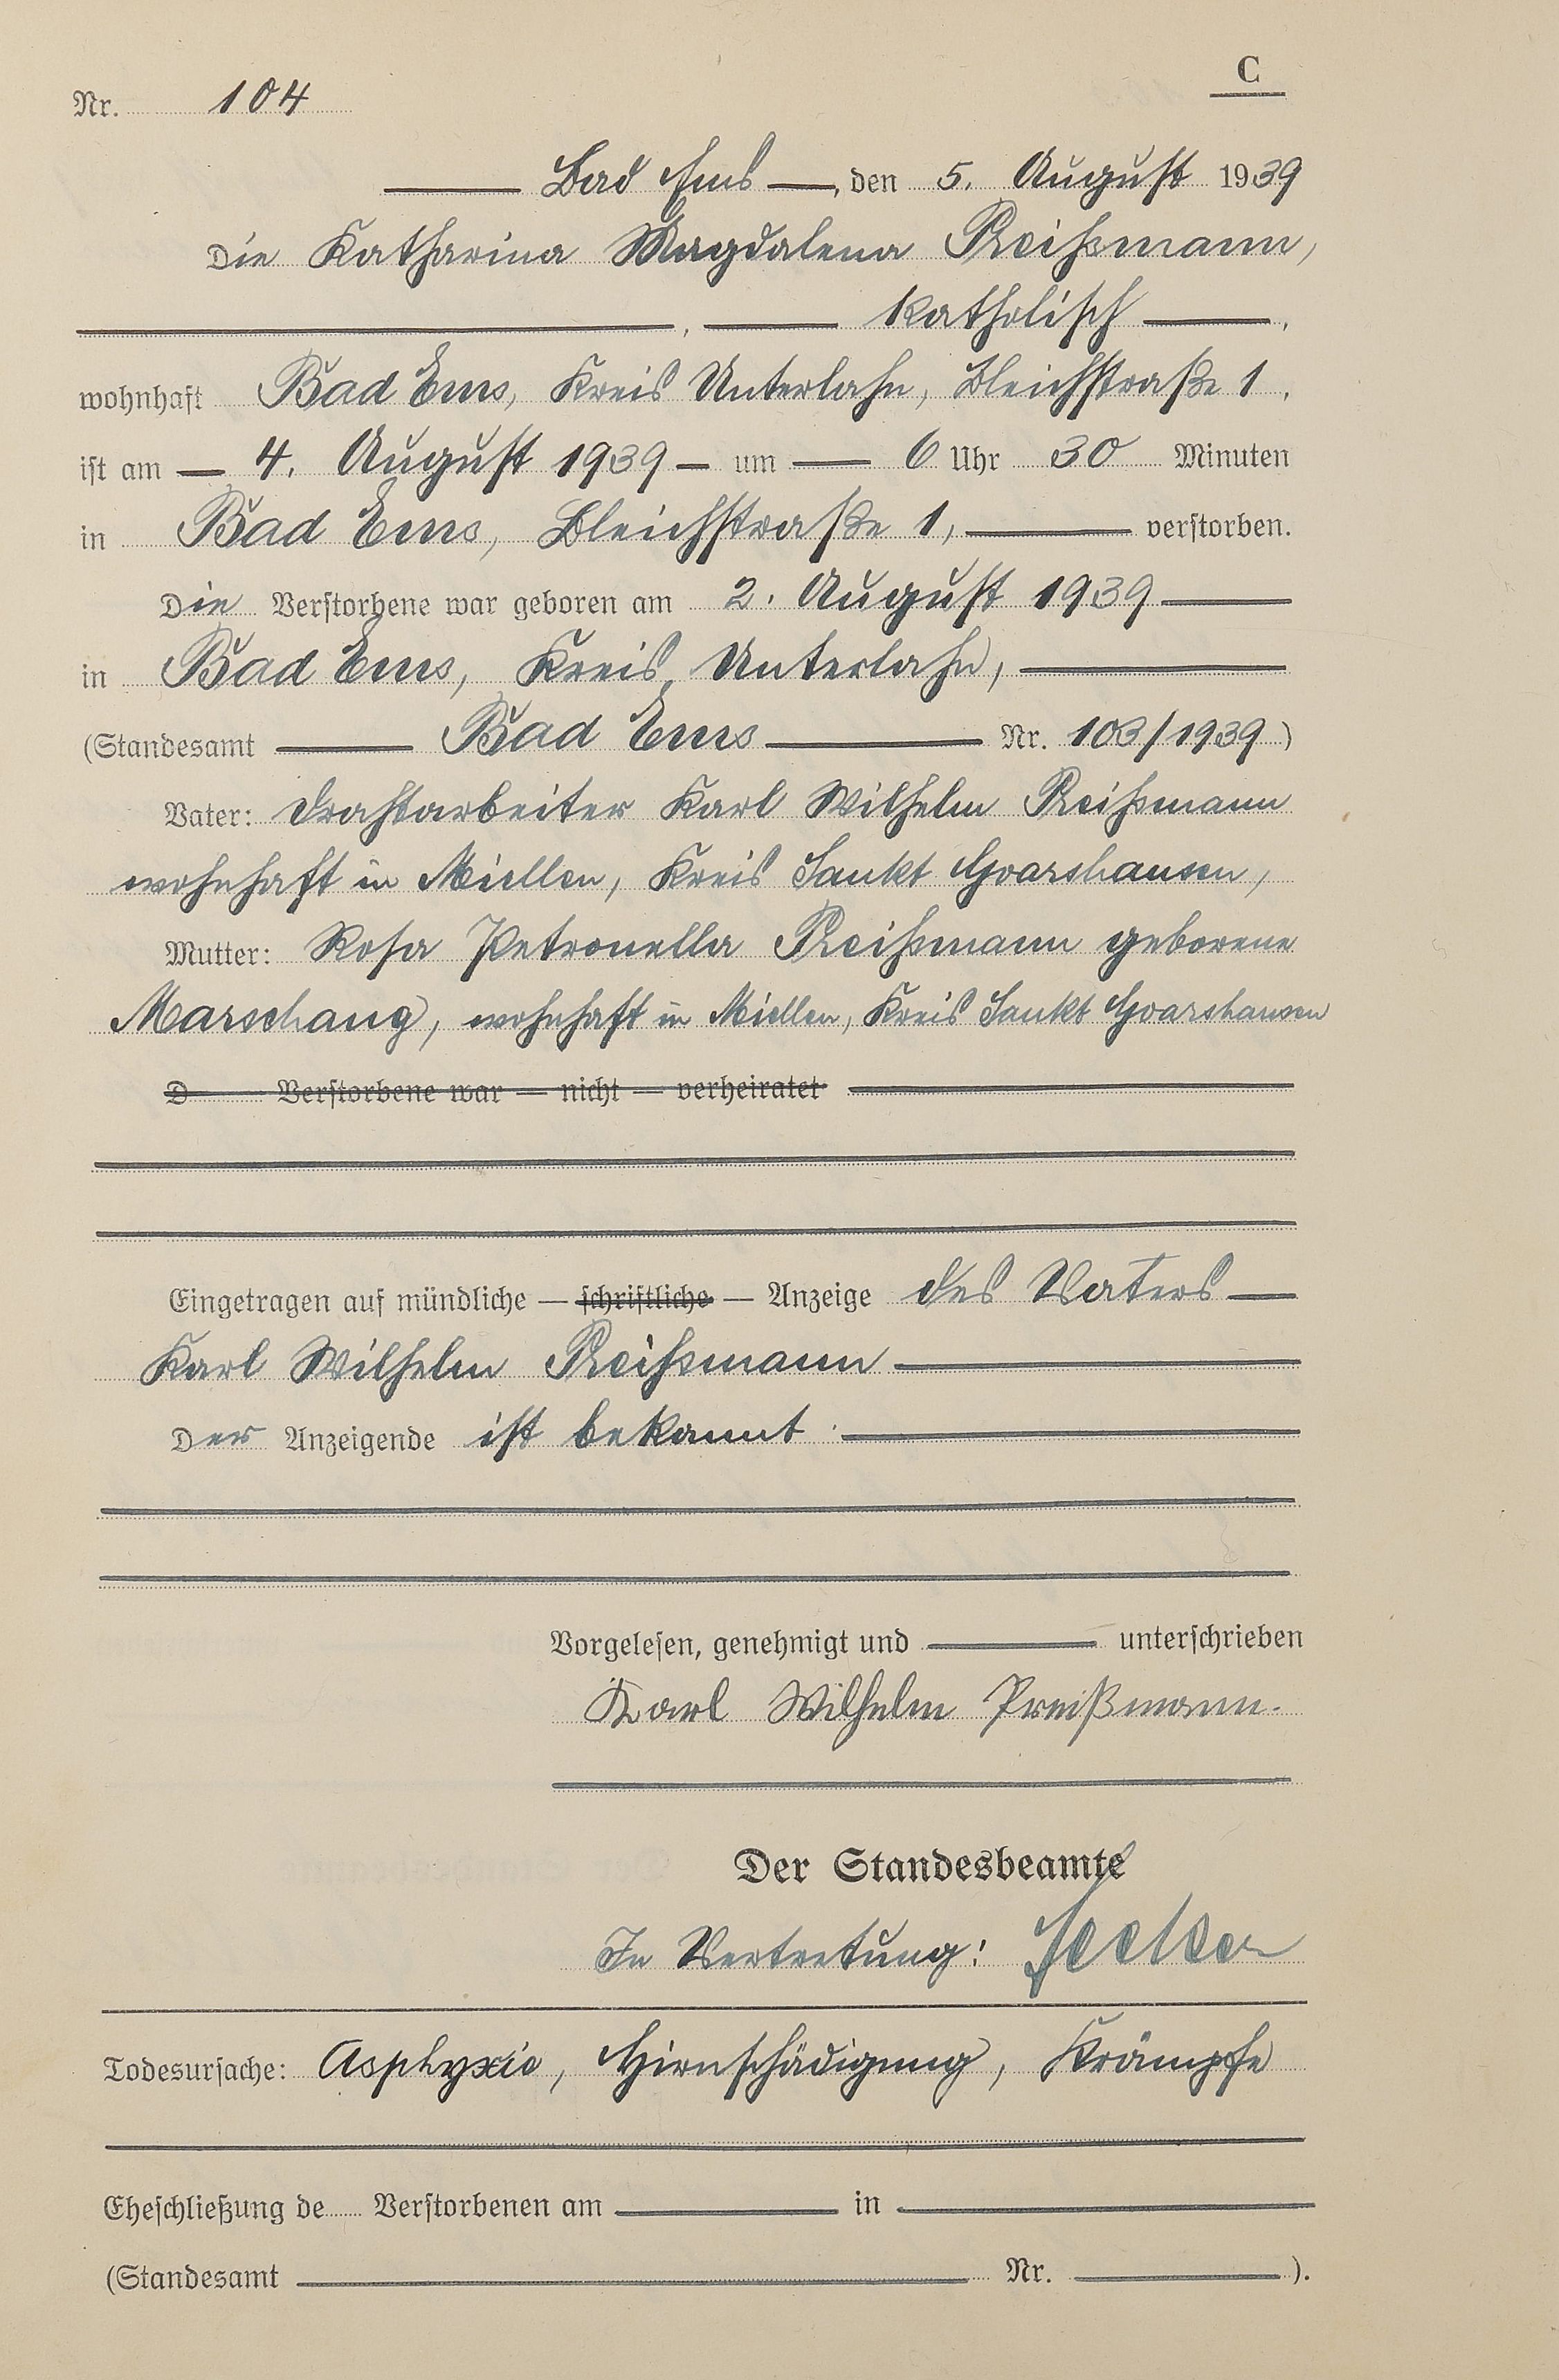 C
Nr. 104
Bad Ems, den 5. August 1939
Die Katharina Magdalena Preißmann,
, katholisch,
wohnhaft Bad Ems, Kreis Unterlahn, Bleichstraße 1,
ist am 4. August 1939 um 6 Uhr 30 Minuten
in Bad Ems, Bleichstraße 1, verstorben.
Die Verstorbene war geboren am 2. August 1939
in Bad Ems, Kreis Unterlahn,
(Standesamt Bad Ems Nr. 103/1939)
Vater: Drahtarbeiter Karl Wilhelm Preißmann
wohnhaft in Miellen, Kreis Sankt Goarshausen,
Mutter: Rosa Petronella Preißmann geborene
Marschang, wohnhaft in Miellen, Kreis Sankt Goarshausen
D Verstorbene war — nicht — verheiratet
Eingetragen auf mündliche — schriftliche — Anzeige des Vaters
Karl Wilhelm Preißmann
Der Anzeigende ist bekannt.
Vorgelesen, genehmigt und unterschrieben
Karl Wilhelm Preißmann.
Der Standesbeamte
In Vertretung:
Todesursache: Asphyxie, Hirnschädigung, Krämpfe
Eheschließung de Verstorbenen am in
(Standesamt Nr. ).